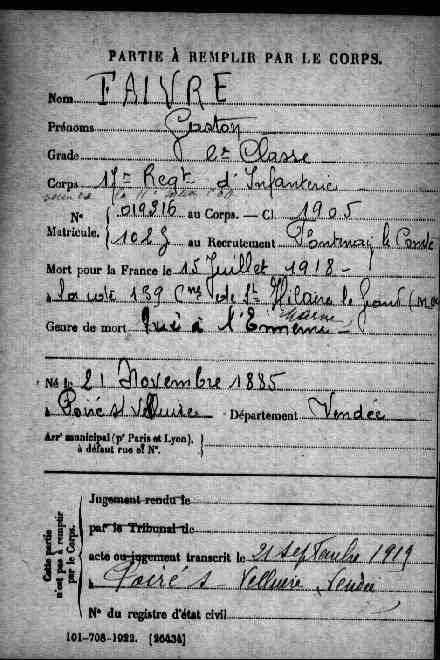 PARTIE À REMPLIR PAR LE CORPS.
Nom FAIVRE
Prénoms Gaston
Grade 2e Classe
Corps 17e Regt d'Infanterie
N° Matricule. 019316 au Corps. — Cl. 1905
1023 au Recrutement Fontenay le Comte
Mort pour la France le 15 Juillet 1918 -
à la cote 139 Cne de St Hilaire le Grand
Marne
Genre de mort Tué à l'Ennemi -
Né le 21 Novembre 1885
à Poiré s/ Velluire Département Vendée
Arr' municipal (p' Paris et Lyon), à défaut rue et N°.
Cette partie n'est pas à remplir par le Corps.
Jugement rendu le
par le Tribunal de
acte ou jugement transcrit le 21 septembre 1919
à Poiré s/ Velluire Vendée
N° du registre d'état civil
101-708-1922. [26434]